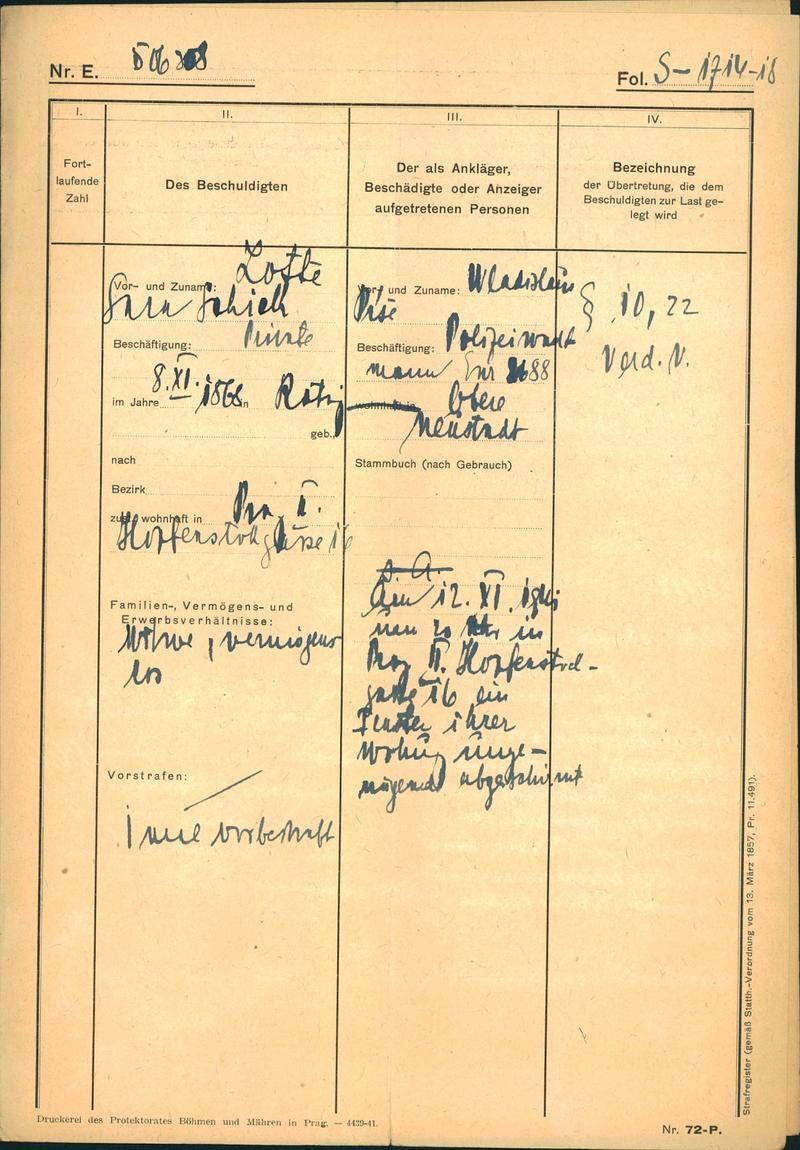 Nr. E. 506308
Fol. S-1714-18
I.
II.
III.
IV.
Fort-
laufende
Zahl
Des Beschuldigten
Der als Ankläger,
Beschädigte oder Anzeiger
aufgetretenen Personen
Bezeichnung
der Übertretung, die dem
Beschuldigten zur Last ge-
legt wird
Lotte
Vor- und Zuname:
Sara Schick
Beschäftigung: Private
8. XI.
im Jahre 1868 in
geb.,
nach
Bezirk
zul. wohnhaft in Prag II.
Hopfenstockgasse 16
Familien-, Vermögens- und
Erwerbsverhältnisse:
Witwe, vermögens
los
Vorstrafen:
1 mal vorbestraft
Vor- und Zuname: Wladislaus
Beschäftigung: Polizeiwacht
mann
wohnhaft in Obere
Neustadt
Stammbuch (nach Gebrauch)
Am 12. XI.
um 20 Uhr in
Prag II. Hopfenstock-
gasse 16 ein
Fenster ihrer
Wohnung unge-
nügend abgeschirmt
§ 10, 22
Verd. V.
Strafregister (gemäß Statth.-Verordnung vom 13. März 1857, Pr. 11.491).
Druckerei des Protektorates Böhmen und Mähren in Prag. — 4439-41.
Nr. 72-P.